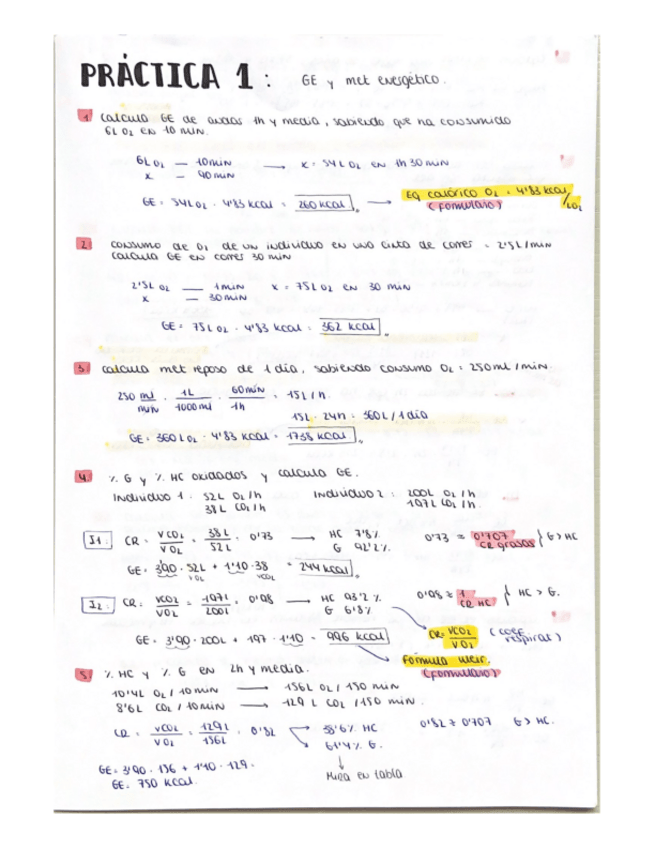 PRÁCTICA 1 : GE y met energético.
1. Calcula GE de andar 1h y media, sabiendo que ha consumido
6L O2 en 10 min.
6L O2 — 10 min → x = 54 L O2 en 1h 30 min
x — 90 min
GE = 54L O2 · 4'83 kcal = 260 kcal → Eq calórico O2 = 4'83 kcal/LO2
(formulario)
2. consumo de O2 de un individuo en una cinta de correr = 2'5 L/min
calcula GE en correr 30 min
2'5L O2 — 1 min x = 75L O2 en 30 min
x — 30 min
GE = 75L O2 · 4'83 kcal = 362 kcal
3. calcula met reposo de 1 día, sabiendo consumo O2 = 250 ml/min.
250 ml/min · 1L/1000 ml · 60 min/1h = 15L/h.
15L · 24h = 360L/1 día
GE = 360L O2 · 4'83 kcal = 1738 kcal
4. % G y % HC oxidados y calcula GE.
Individuo 1 : 52L O2/h Individuo 2 : 200L O2/h
38L CO2/h 197L CO2/h.
I1 CR = VCO2/VO2 = 38L/52L = 0'73 → HC 7'8% G 92'2% 0'73 ≈ 0'707 CR grasas } G > HC
GE = 3'90 · 52L + 1'10 · 38 = 244 kcal
VO2 VCO2
I2 CR = VCO2/VO2 = 197L/200L = 0'98 → HC 93'2% G 6'8% 0'98 ≈ 1 CR HC } HC > G.
GE = 3'90 · 200L + 197 · 1'10 = 996 kcal CR = VCO2/VO2 (coef respirat.)
Fórmula Weir.
(formulario)
5. % HC y % G en 2h y media.
10'4L O2/10 min → 156L O2/150 min
8'6L CO2/10 min → 129 L CO2/150 min.
CR = VCO2/VO2 = 129L/156L = 0'82 → 38'6% HC 0'82 ≈ 0'707 G > HC.
61'4% G.
↓
Mira en tabla
GE = 3'90 · 156 + 1'10 · 129 =
GE = 750 kcal.